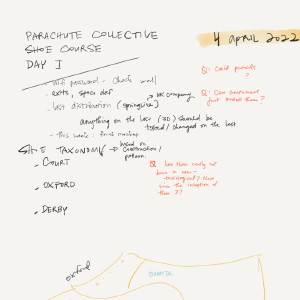 PARACHUTE COLLECTIVE
SHOE COURSE
DAY I
4 APRIL 2022
- wifi password - check wall
- exits, space def
- last distribution (springline)
→ UK company
anything on the last (3D) should be
tested / changed on the last
- this week: first mockup
SHOE TAXONOMY → based on
construction /
pattern.
- COURT
- OXFORD
- DERBY
Q: Could
?
Q: Can customers
just order them?
Q: Has there really not
been a new
shoe
since the inception of
these??
oxford